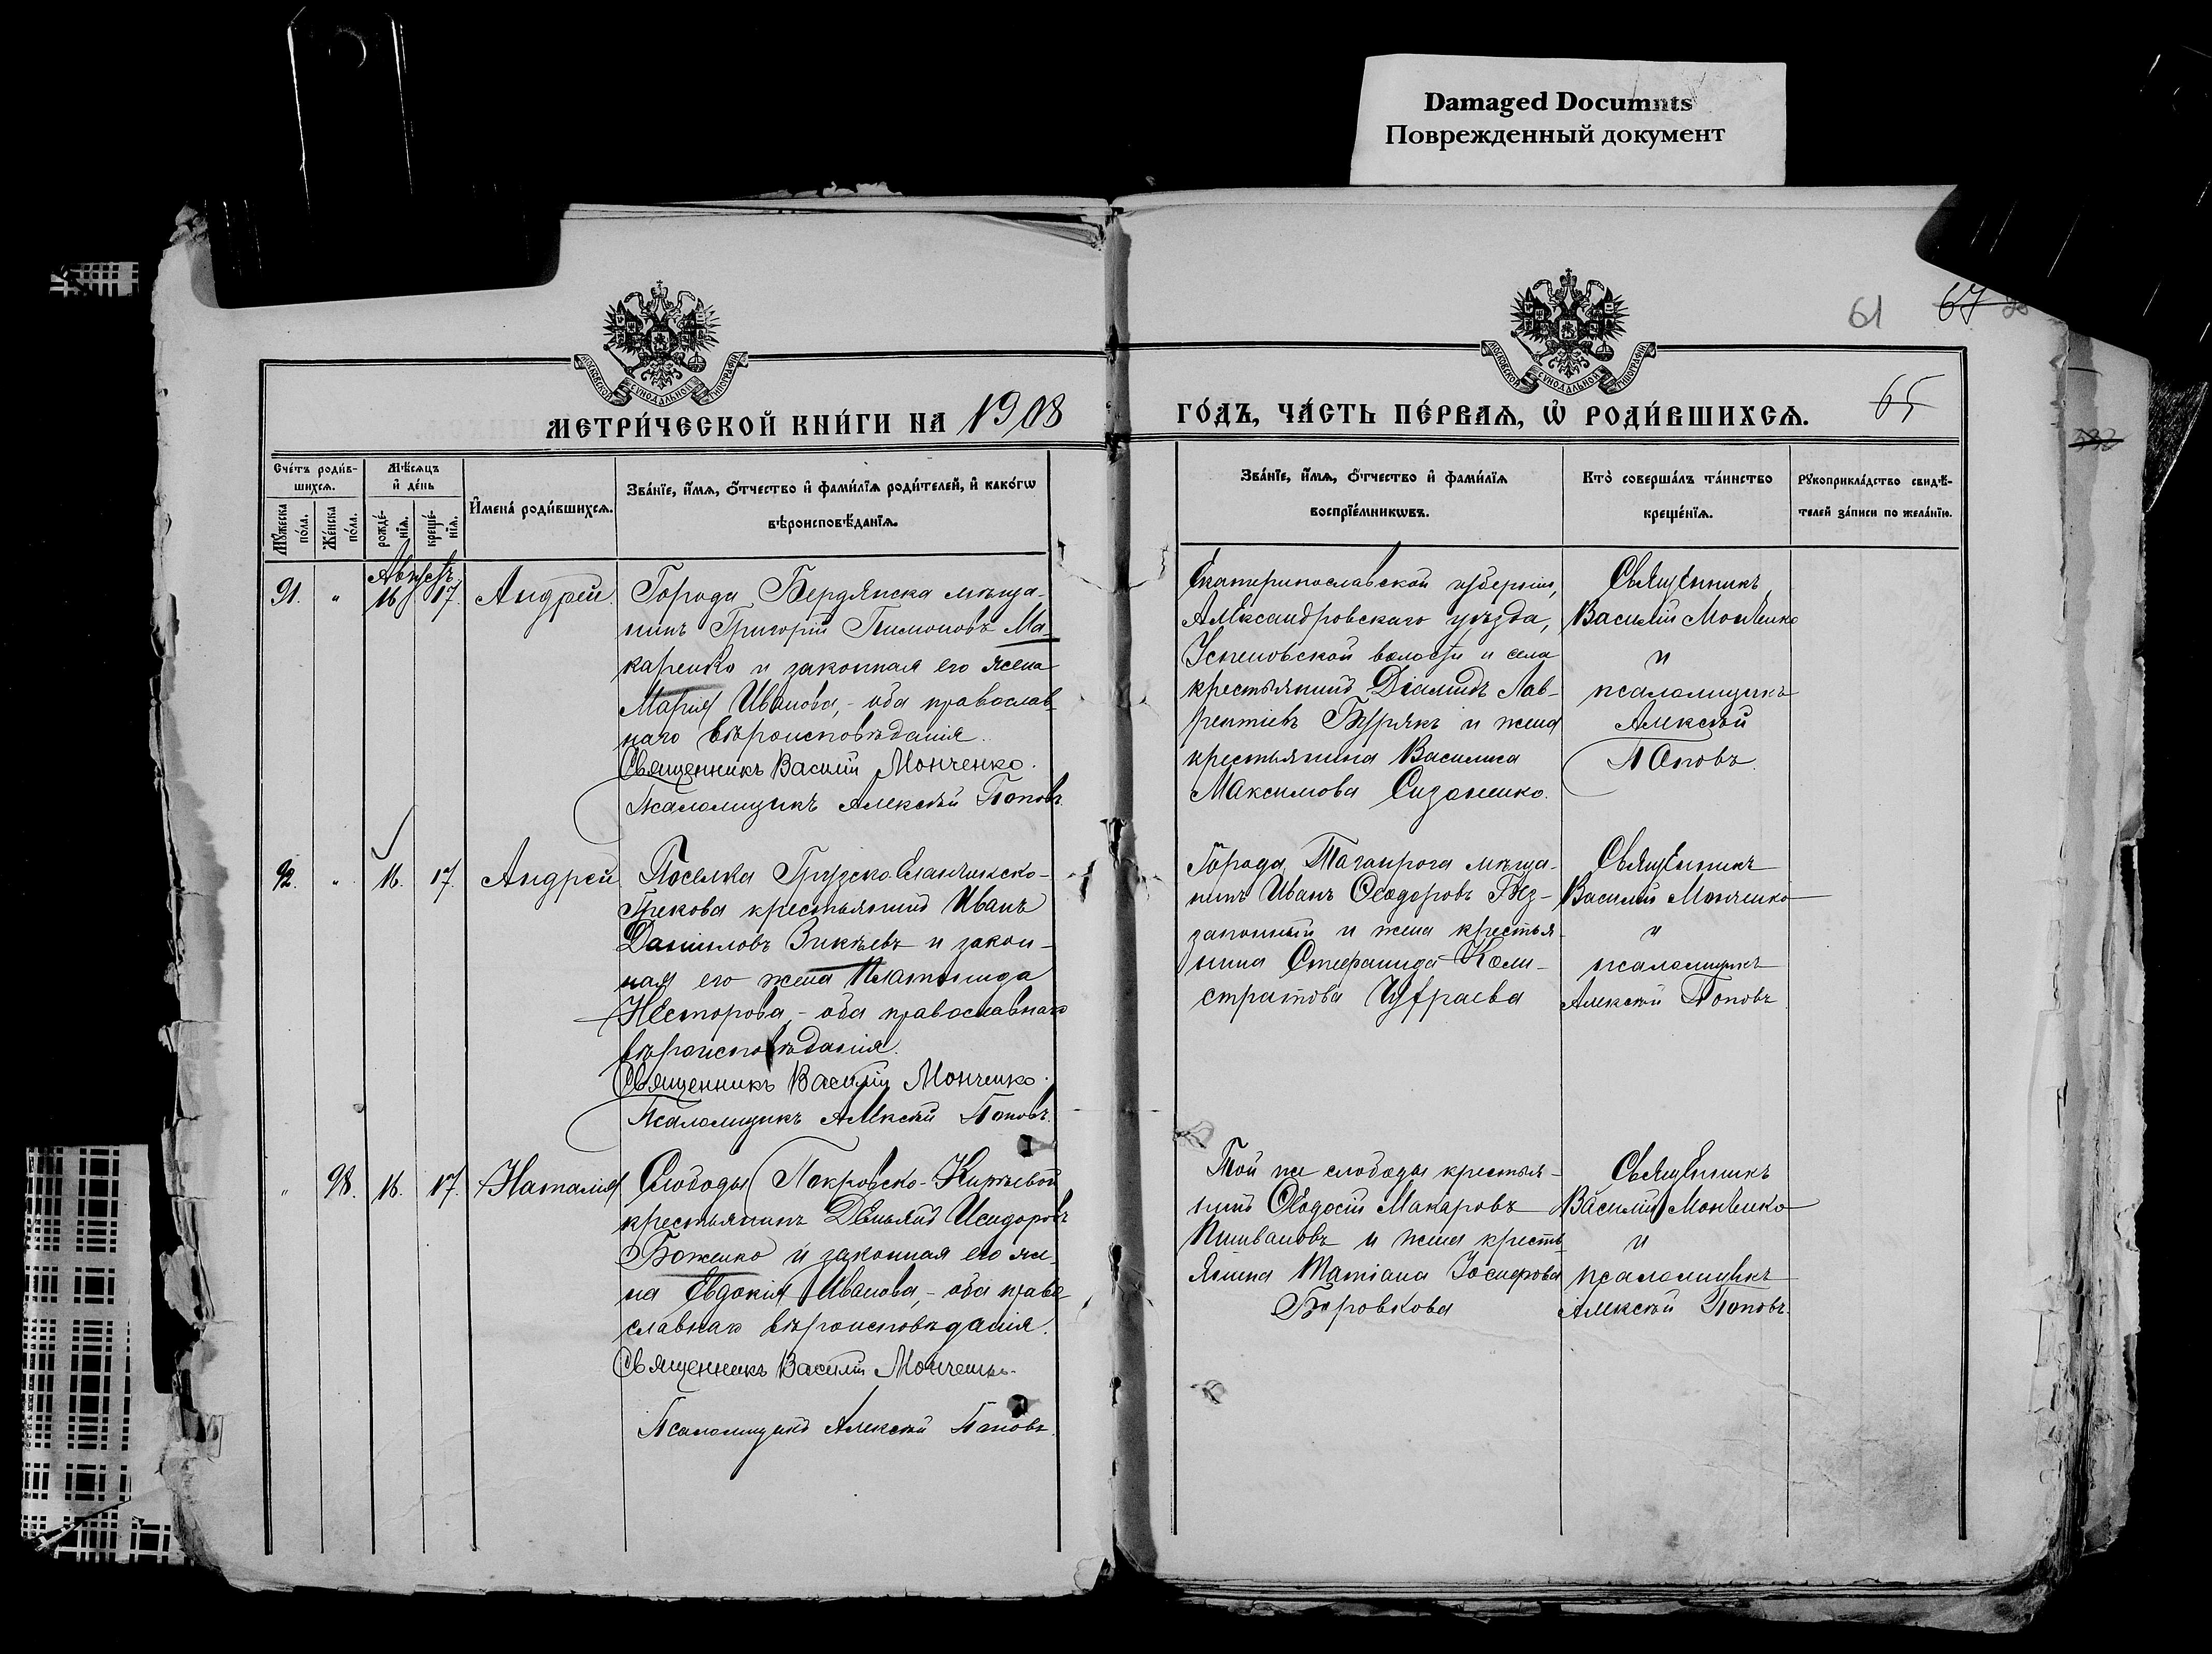 Damaged Documnts
Поврежденный документ
61
67
65
МОСКОВСКОЙ СУНОДАЛЬНОЙ ТИПОГРАФІИ
МОСКОВСКОЙ СУНОДАЛЬНОЙ ТИПОГРАФІИ
МЕТРИ́ЧЕСКОЙ КНИ́ГИ НА 1908
ГО́ДЪ, ЧА́СТЬ ПЕ́РВАѦ, Ѡ҆ РОДИ́ВШИХСѦ.
Сче́тъ роди́в-
шихсѧ.
Мꙋ́жеска по́ла.
Же́нска по́ла.
Мѣ́сѧцъ
и҆ де́нь
рожде́-
нїѧ.
креще́-
нїѧ.
И҆мена̀ роди́вшихсѧ.
Зва́нїе, и҆́мѧ, ѻ҆́тчество и҆ фами́лїѧ роди́телей, и҆ како́гѡ
вѣроисповѣ́данїѧ.
Зва́нїе, и҆́мѧ, ѻ҆́тчество и҆ фами́лїѧ
воспрїе́мникѡвъ.
Кто̀ соверша́лъ та́инство
креще́нїѧ.
Рꙋкоприкла́дство свидѣ́-
телей за́писи по жела́нїю.
Августъ
91. " 16 17. Андрей.
Города Бердянска мѣща-
нинъ Григорій Тимоновъ Ма-
каренко и законная его жена
Марія Иванова, - оба православ
наго вѣроисповѣданія.
Священникъ Василій Монченко.
Псаломщикъ Алексѣй Поповъ
Екатеринославской губерніи,
Александровскаго уѣзда,
Успеновской волости и села
крестьянинъ Діамидъ Лав-
рентіевъ Бурякъ и жена
крестьянина Василиса
Максимова Сизоненко.
Священникъ
Василій Монченко
и
псаломщикъ
Алексѣй
Поповъ.
92. " 16. 17. Андрей
Поселка Грузско-Еланчикско-
Грекова крестьянинъ Иванъ
Даниловъ Зикѣевъ и закон-
ная его жена Платонида
Несторова, - оба православнаго
вѣроисповѣданія.
Священникъ Василій Монченко.
Псаломщикъ Алексѣй Поповъ.
Города Таганрога мѣща-
нинъ Иванъ Ѳеодоровъ Без-
законный и жена крестья-
нина Стефанида Коли-
стратова
Священникъ
Василій Монченко
и
псаломщикъ
Алексѣй Поповъ
" 98. 16. 17. Наталія
Слободы Покровско-Кирѣевой
крестьянинъ Демьянъ Исидоровъ
Боженко и законная его же-
на Евдокія Иванова, - оба право
славнаго вѣроисповѣданія.
Священникъ Василій Монченко.
Псаломщикъ Алексѣй Поповъ.
Той же слободы крестья-
нинъ Ѳеодосій Макаровъ
и жена кресть
янина Татіана Іосифова
Боровкова
Священникъ
Василій Монченко
и
псаломщикъ
Алексѣй Поповъ.